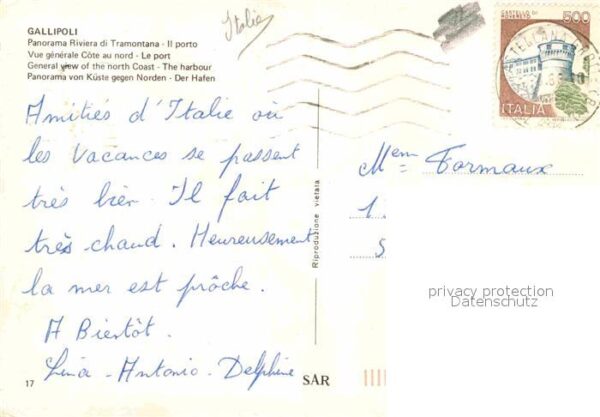 Italie
GALLIPOLI
Panorama Riviera di Tramontana - Il porto
Vue générale Côte au nord - Le port
General view of the north Coast - The harbour
Panorama von Küste gegen Norden - Der Hafen
CASTELLO DI
ROVERETO
500
ITALIA
Amitiés d'Italie où
les Vacances se passent
très bien. Il fait
très chaud. Heureusement
la mer est prôche.
A Bientôt.
Lina - Antonio - Delphine
Riproduzione vietata
Mem Tormaux
1
S
privacy protection
Datenschutz
17
SAR